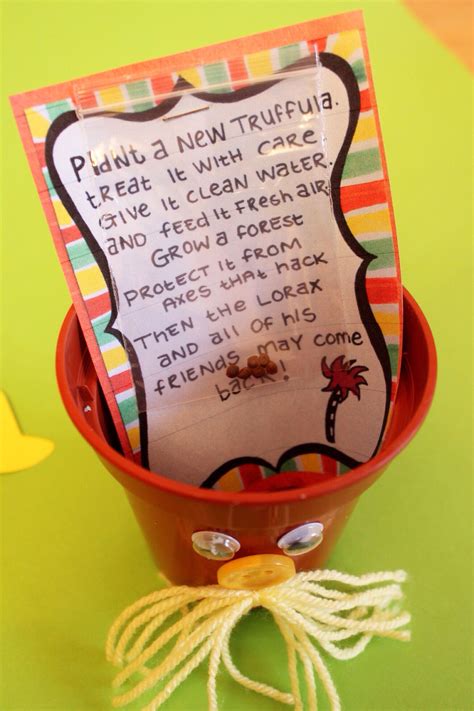 Plant a New Truffula.
treat it with care
Give it clean water.
and feed it fresh air.
Grow a forest
protect it from
axes that hack
Then the Lorax
and all of his
friends may come
back!